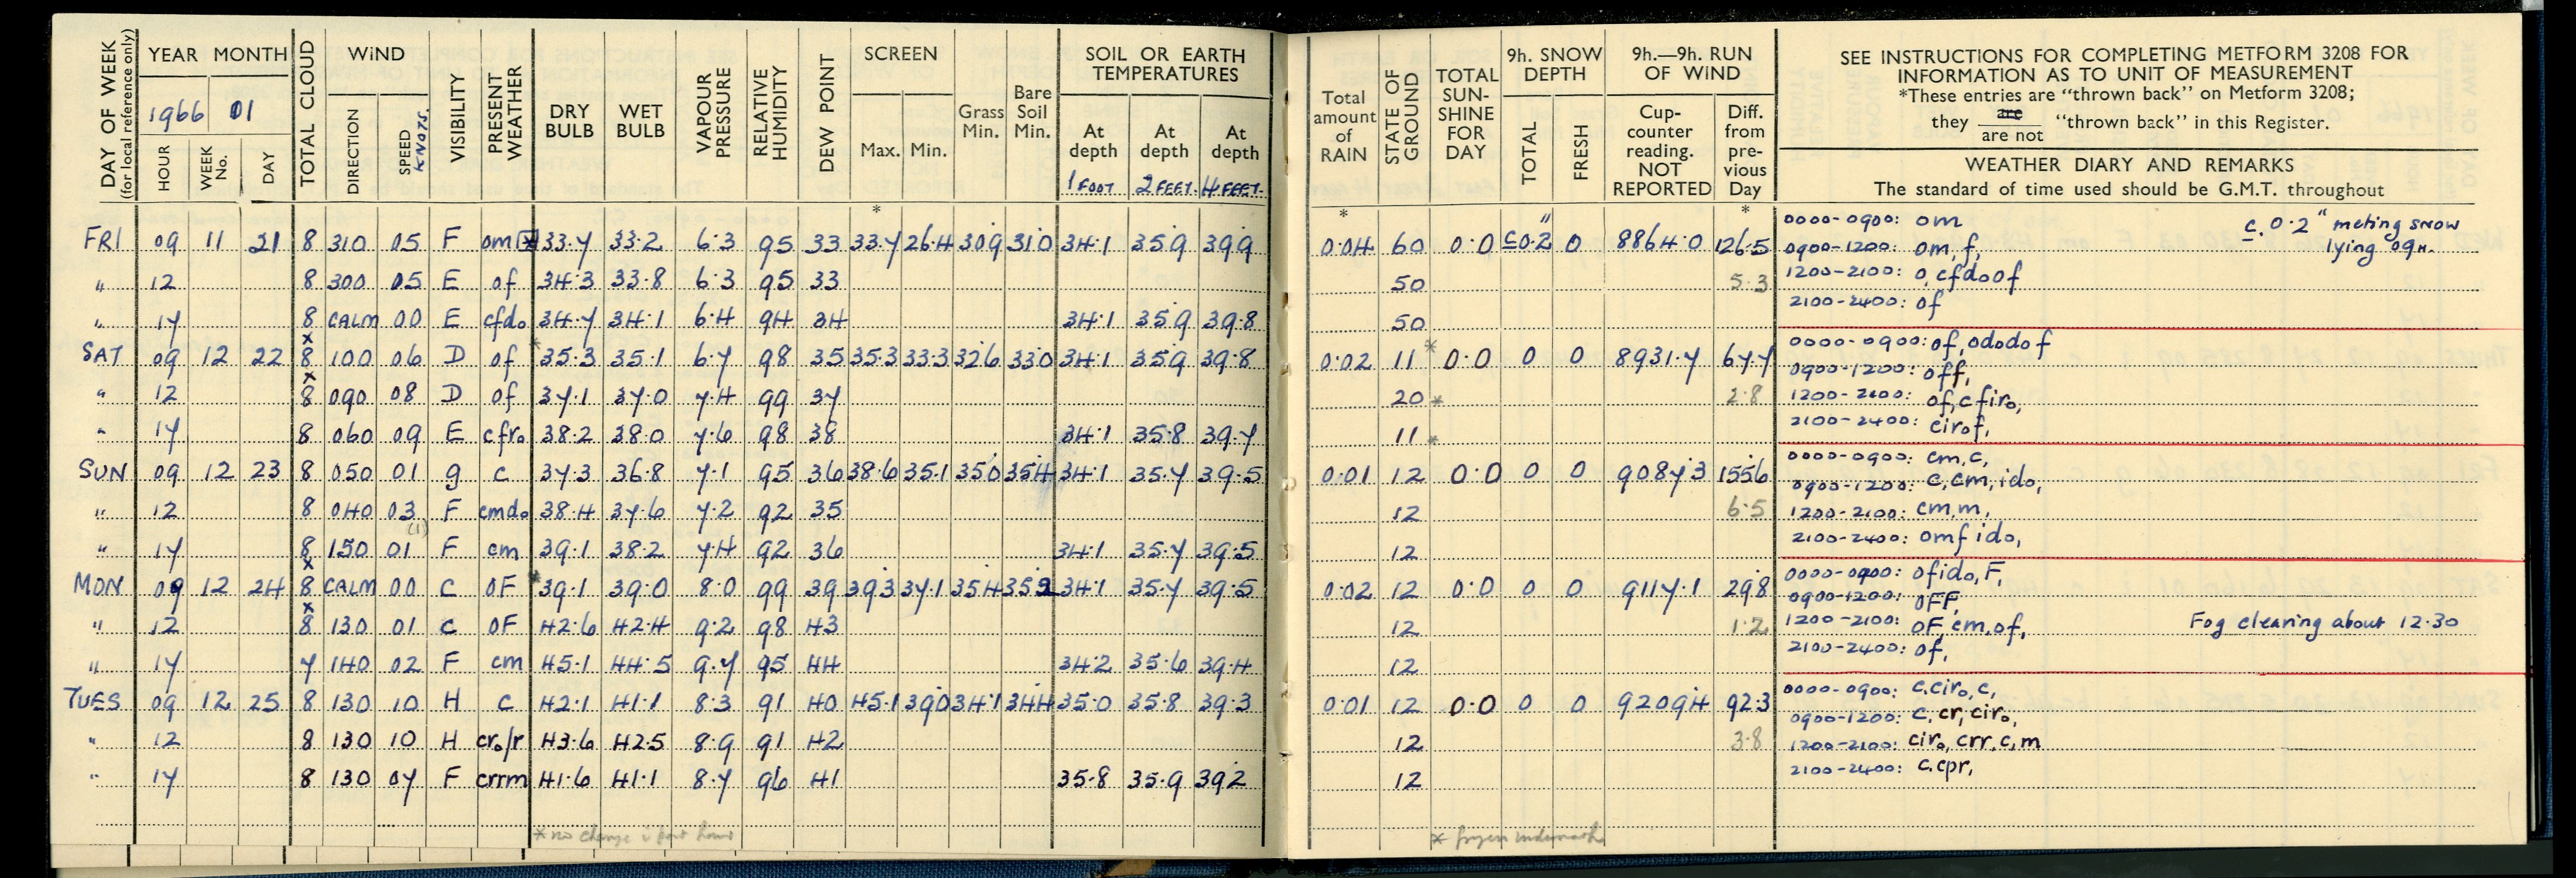 DAY OF WEEK
(for local reference only)
YEAR MONTH
1966 01
HOUR
WEEK No.
DAY
TOTAL CLOUD
WIND
DIRECTION
SPEED KNOTS.
VISIBILITY
PRESENT WEATHER
DRY BULB
WET BULB
VAPOUR PRESSURE
RELATIVE HUMIDITY
DEW POINT
SCREEN
Max. Min.
Grass Min.
Bare Soil Min.
SOIL OR EARTH TEMPERATURES
At depth 1 FOOT
At depth 2 FEET.
At depth 4 FEET.
Total amount of RAIN
STATE OF GROUND
TOTAL SUN-SHINE FOR DAY
9h. SNOW DEPTH
TOTAL
FRESH
9h.—9h. RUN OF WIND
Cup-counter reading. NOT REPORTED
Diff. from pre-vious Day
SEE INSTRUCTIONS FOR COMPLETING METFORM 3208 FOR
INFORMATION AS TO UNIT OF MEASUREMENT
*These entries are "thrown back" on Metform 3208;
they are / are not "thrown back" in this Register.
WEATHER DIARY AND REMARKS
The standard of time used should be G.M.T. throughout
* * *
FRI 09 11 21 8 310 05 F om 33.7 33.2 6.3 95 33 33.7 26.4 30.9 31.0 34.1 35.9 39.9 0.04 60 0.0 c0.2" 0 8864.0 126.5
" 12 8 300 05 E of 34.3 33.8 6.3 95 33 50 5.3
" 17 8 CALM 00 E cfdo 34.7 34.1 6.4 94 34 34.1 35.9 39.8 50
0000-0900: om
c. 0.2" melting snow
0900-1200: om, f,
lying 09H.
1200-2100: o, cfdoof
2100-2400: of
SAT 09 12 22 8 100 06 D of *35.3 35.1 6.7 98 35 35.3 33.3 32.6 33.0 34.1 35.9 39.8 0.02 11* 0.0 0 0 8931.7 67.7
" 12 8 090 08 D of 37.1 37.0 7.4 99 37 20* 2.8
" 17 8 060 09 E cfro 38.2 38.0 7.6 98 38 34.1 35.8 39.7 11*
0000-0900: of, ododof
0900-1200: off,
1200-2100: of, cfiro,
2100-2400: cirof,
SUN 09 12 23 8 050 01 g c 37.3 36.8 7.1 95 36 38.6 35.1 35.0 35.4 34.1 35.7 39.5 0.01 12 0.0 0 0 9087.3 155.6
" 12 8 040 03 F cmdo 38.4 37.6 7.2 92 35 12 6.5
(1)
" 17 8 150 01 F cm 39.1 38.2 7.4 92 36 34.1 35.7 39.5 12
0000-0900: cm, c,
0900-1200: c, cm, ido,
1200-2100: cm, m,
2100-2400: omf ido,
MON 09 12 24 8 CALM 00 C OF *39.1 39.0 8.0 99 39 39.3 37.1 35.4 35.9 34.1 35.7 39.5 0.02 12 0.0 0 0 9117.1 29.8
" 12 8 130 01 C OF 42.6 42.4 9.2 98 43 12 1.2
" 17 7 140 02 F cm 45.1 44.5 9.7 95 44 34.2 35.6 39.4 12
0000-0900: ofido, F,
0900-1200: OFF,
1200-2100: OF, cm, of,
Fog clearing about 12.30
2100-2400: of,
TUES 09 12 25 8 130 10 H c 42.1 41.1 8.3 91 40 45.1 39.0 34.1 34.4 35.0 35.8 39.3 0.01 12 0.0 0 0 9209.4 92.3
" 12 8 130 10 H cro/r 43.6 42.5 8.9 91 42 12 3.8
" 17 8 130 07 F crrm 41.6 41.1 8.7 96 41 35.8 35.9 39.2 12
0000-0900: c, ciro, c,
0900-1200: c, cr, ciro,
1200-2100: ciro, crr, c, m
2100-2400: c, cpr,
* no change in past hour
* frozen underneath